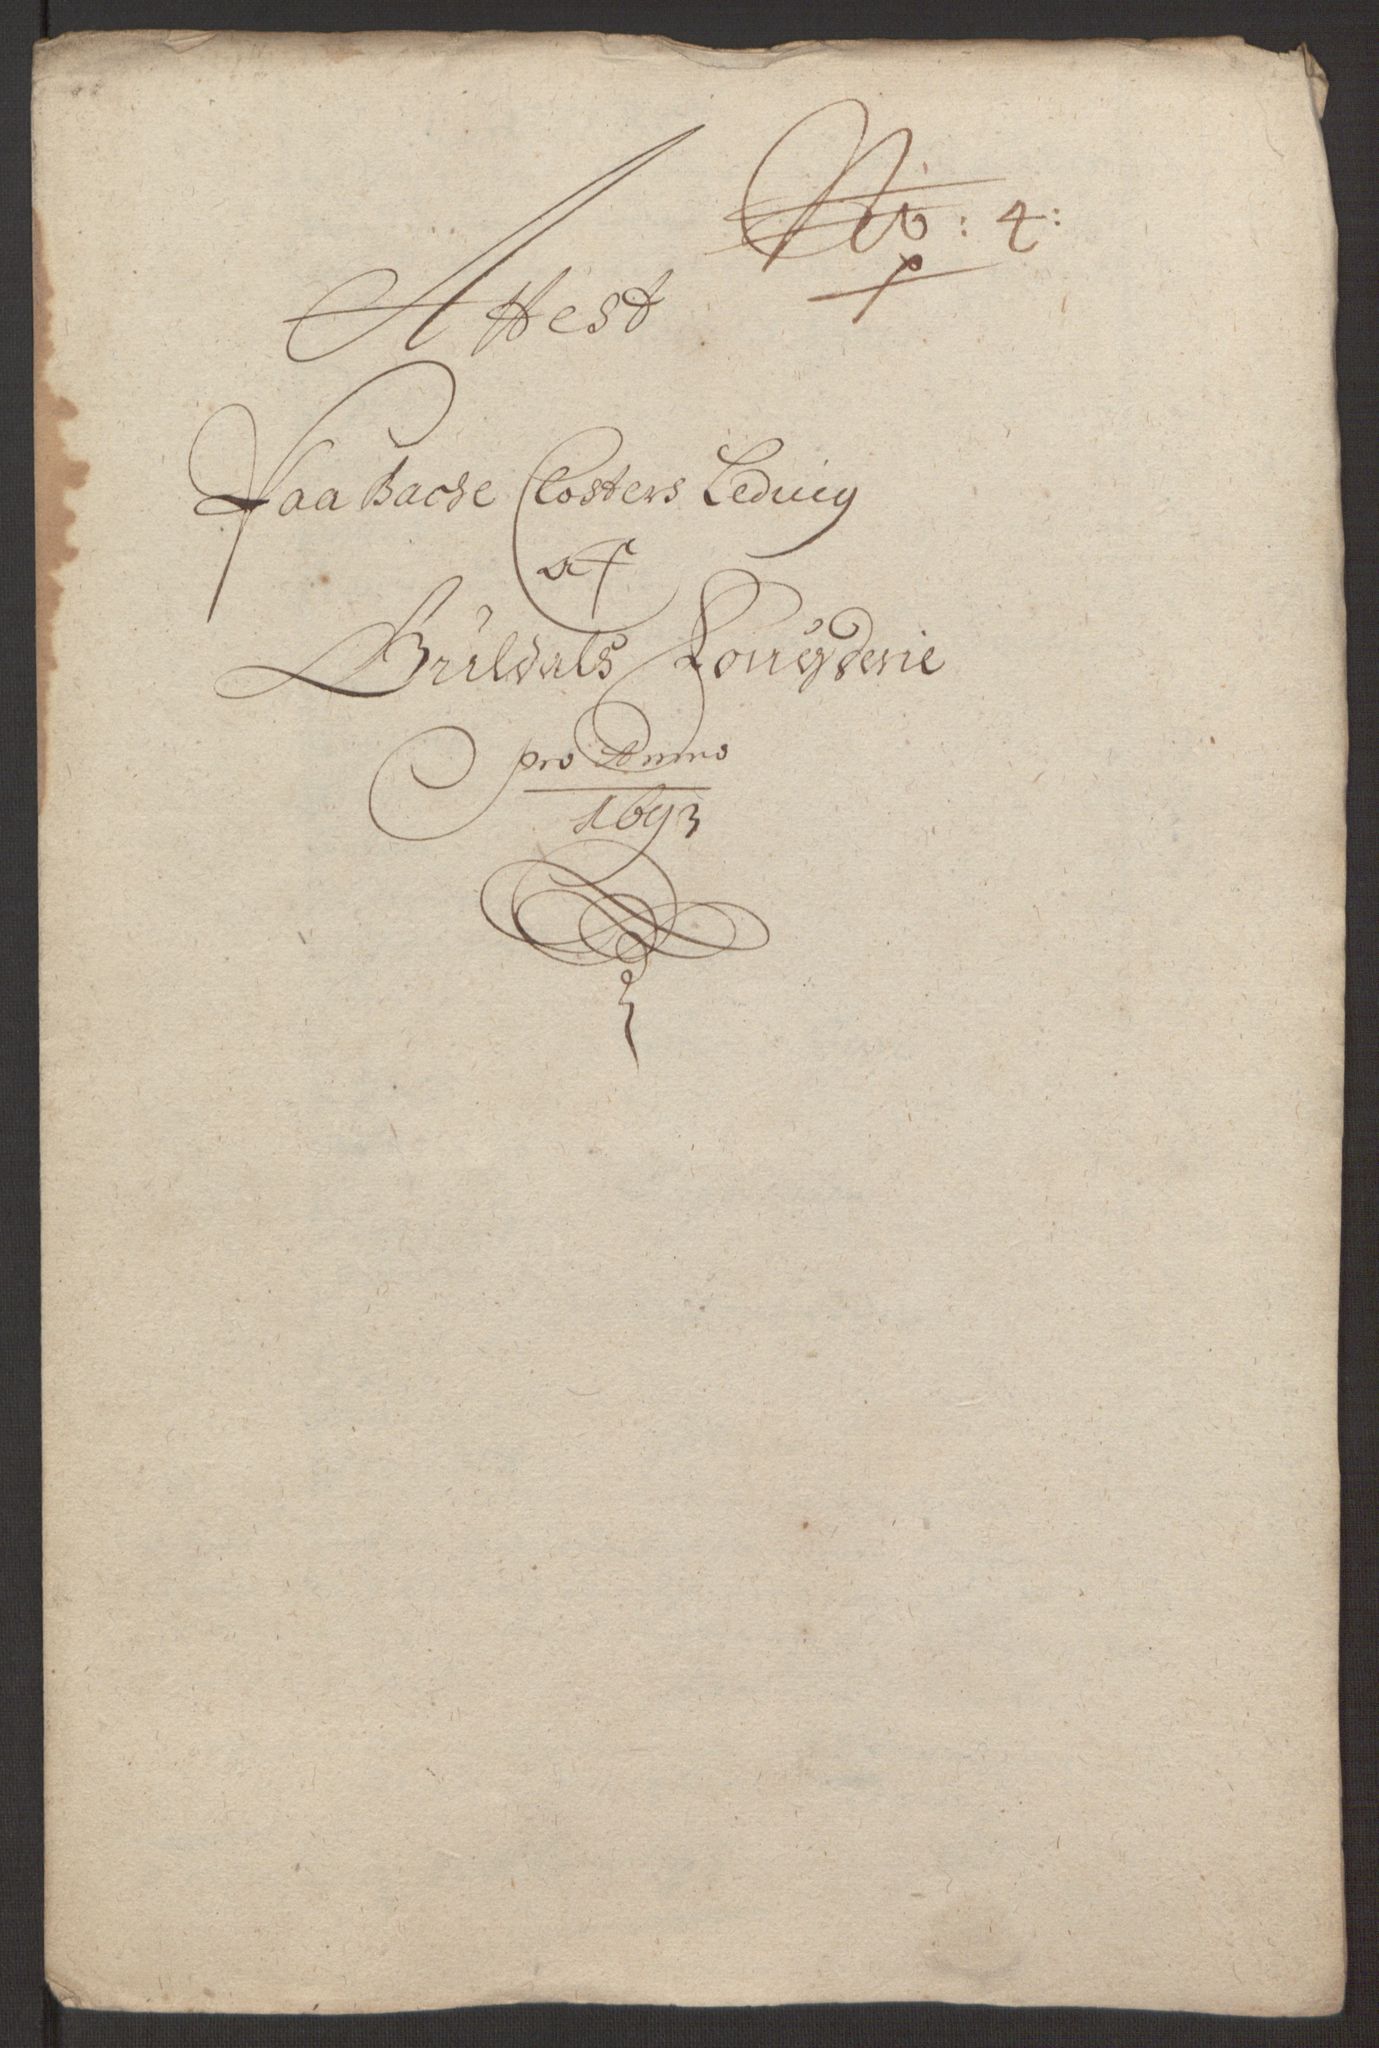 No: 4:
Attest
Paa Bache Closters Leding
af
Bruldals Fougderie
pro Anno
1693